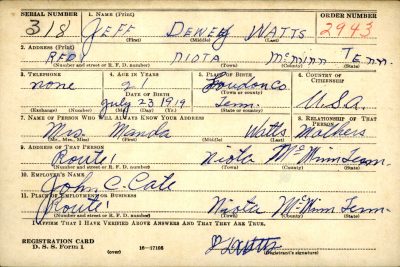 SERIAL NUMBER 1. NAME (Print) ORDER NUMBER
318 JEFF DEWEY WATTS 2943
(First) (Middle) (Last)
2. ADDRESS (Print)
RFD 1 NIOTA McMinn Tenn.
(Number and street or R. F. D. number) (Town) (County) (State)
3. TELEPHONE 4. AGE IN YEARS 5. PLACE OF BIRTH 6. COUNTRY OF CITIZENSHIP
none 21 Loudon Co.
DATE OF BIRTH (Town or county)
July 23 1919 Tenn. U.S.A.
(Exchange) (Number) (Mo.) (Day) (Yr.) (State or country)
7. NAME OF PERSON WHO WILL ALWAYS KNOW YOUR ADDRESS 8. RELATIONSHIP OF THAT PERSON
Mrs. Manda Watts Mothers
(Mr., Mrs., Miss) (First) (Middle) (Last)
9. ADDRESS OF THAT PERSON
Route 1 Niota McMinn Tenn.
(Number and street or R. F. D. number) (Town) (County) (State)
10. EMPLOYER'S NAME
John C. Cate
11. PLACE OF EMPLOYMENT OR BUSINESS
Route 1 Niota McMinn Tenn.
(Number and street or R. F. D. number) (Town) (County) (State)
I AFFIRM THAT I HAVE VERIFIED ABOVE ANSWERS AND THAT THEY ARE TRUE.
REGISTRATION CARD
D. S. S. Form 1 (over) 16—17105 (Registrant's signature)